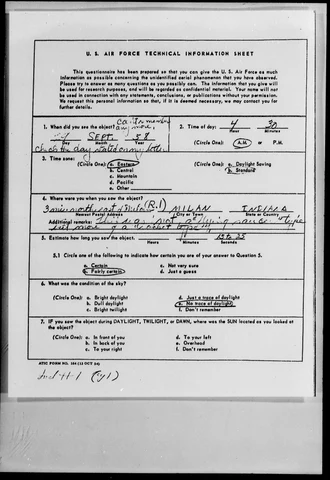 U. S. AIR FORCE TECHNICAL INFORMATION SHEET
This questionnaire has been prepared so that you can give the U. S. Air Force as much
information as possible concerning the unidentified aerial phenomenon that you have observed.
Please try to answer as many questions as you possibly can. The information that you give will
be used for research purposes, and will be regarded as confidential material. Your name will not
be used in connection with any statements, conclusions, or publications without your permission.
We request this personal information so that, if it is deemed necessary, we may contact you for
further details.
1. When did you see the object?
any more,
SEPT. 58
Day Month Year
check the day stated on my letter
2. Time of day: 4 30
Hour Minutes
(Circle One): A.M. or P.M.
3. Time zone:
(Circle One): a. Eastern
b. Central
c. Mountain
d. Pacific
e. Other
(Circle One): a. Daylight Saving
b. Standard
4. Where were you when you saw the object?
3 miles north east of Milan (R.1) MILAN INDIANA
Nearest Postal Address City or Town State or Country
Additional remarks: This was not a flying saucer type
but more of a rocket type
5. Estimate how long you saw the object. 15 to 25
Hours Minutes Seconds
5.1 Circle one of the following to indicate how certain you are of your answer to Question 5.
a. Certain
b. Fairly certain
c. Not very sure
d. Just a guess
6. What was the condition of the sky?
(Circle One): a. Bright daylight
b. Dull daylight
c. Bright twilight
d. Just a trace of daylight
e. No trace of daylight
f. Don't remember
7. IF you saw the object during DAYLIGHT, TWILIGHT, or DAWN, where was the SUN located as you looked at
the object?
(Circle One): a. In front of you
b. In back of you
c. To your right
d. To your left
e. Overhead
f. Don't remember
ATIC FORM NO. 164 (13 OCT 54)